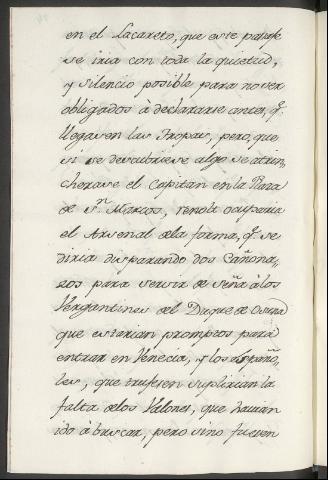 en el Lacareto, que este pasaje
se iria con toda la quietud,
y silencio posible para no ser
obligados à declararse antes, q.^e
llegasen las Tropas, pero, que
si se descubriese algo se atrin
cherase el Capitan en la Plaza
de S.^n Marcos, renolt ocuparia
el Arsenal dela forma, q.^e se
diria disparando dos Cañona-
zos para servir de seña à los
Vergantines del Duque de Osuna
que estarian promptos para
entrar en Venecia, y los españo-
les, que trusesen suplirian la
falta delos Valones, que havian
ido à buscar, pero sino fuesen